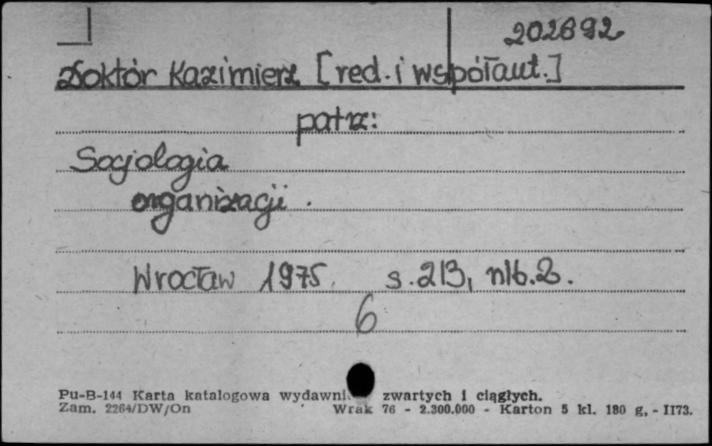 202692
Doktór Kazimierz [red. i współaut.]
patrz:
Socjologia
organizacji.
Wrocław 1975. s. 213, nlb. 2.
6
Pu-B-144 Karta katalogowa wydawni zwartych i ciągłych.
Zam. 2264/DW/On Wrak 76 - 2.300.000 - Karton 5 kl. 180 g, - II73.